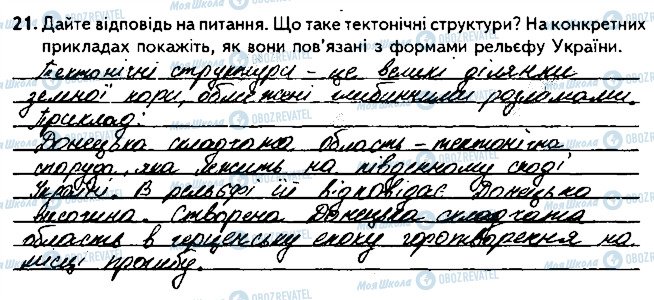 21. Дайте відповідь на питання. Що таке тектонічні структури? На конкретних
прикладах покажіть, як вони пов'язані з формами рельєфу України.
Тектонічні структури – це великі ділянки
земної кори, обмежені глибинними розломами.
Приклад:
Донецька складчаста область – тектонічна
споруда, яка лежить на південному сході
України. В рельєфі їй відповідає Донецька
височина. Створена Донецька складчаста
область в герценську епоху горотворення на
місці прогибу.